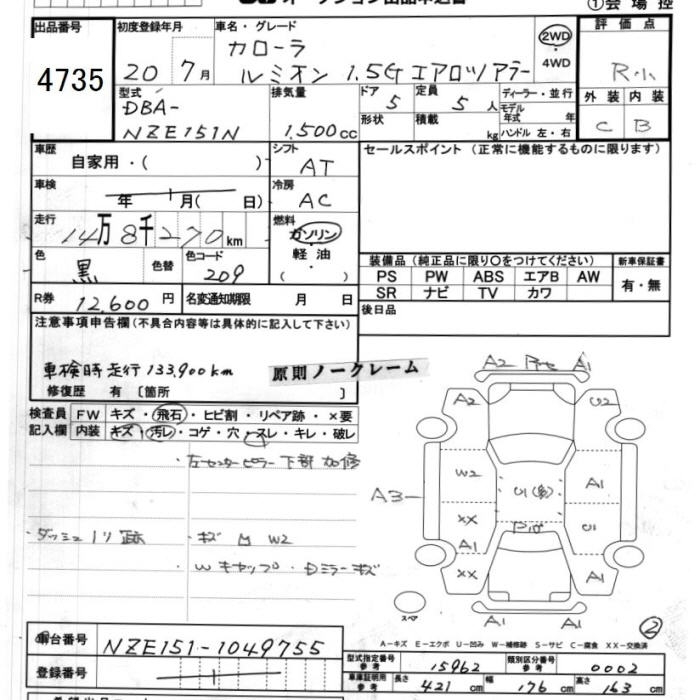 ①会場控
出品番号 初度登録年月 車名・グレード 評価点
4735 20 7月 カローラ ルミオン 1.5G エアロツアラー 2WD・4WD
外装 内装
C B
型式 DBA- NZE151N
排気量 1,500cc
ドア 5 定員 5人 ディーラー・並行
形状 積載 kg モデル年式 年
ハンドル 左・右
車歴 自家用・( ) シフト AT
セールスポイント (正常に機能するものに限ります)
車検 年 月( 日) 冷房 AC
走行 14万8千270km 燃料 ガソリン・軽油 ( )
色 黒 色替 色コード 209
装備品 (純正品に限り○をつけてください) 新車保証書
PS PW ABS エアB AW 有・無
SR ナビ TV カワ
R券 12,600円 名変通知期限 月 日
後日品
注意事項申告欄 (不具合内容等は具体的に記入して下さい)
車検時走行 133,900km
原則ノークレーム
修復歴 有 〔箇所 〕
検査員記入欄 FW キズ・飛石・ヒビ割・リペア跡・×要
内装 キズ・汚レ・コゲ・穴・スレ・キレ・破レ
左センターピラー下部 加修
・キズ 凹 W2
Wキャップ・Dミラーキズ
A2 A1
A2 U2
W2 A1
A3
XX U
A1
XX A1
A1 A1
スペア
②
A-キズ E-エクボ U-凹み W-補修跡 S-サビ C-腐食 XX-交換済
車台番号 NZE151-1049755
登録番号
型式指定番号 参考 15962 類別区分番号 参考 0002
車庫証明用 参考 長さ 421cm 幅 176cm 高さ 163cm